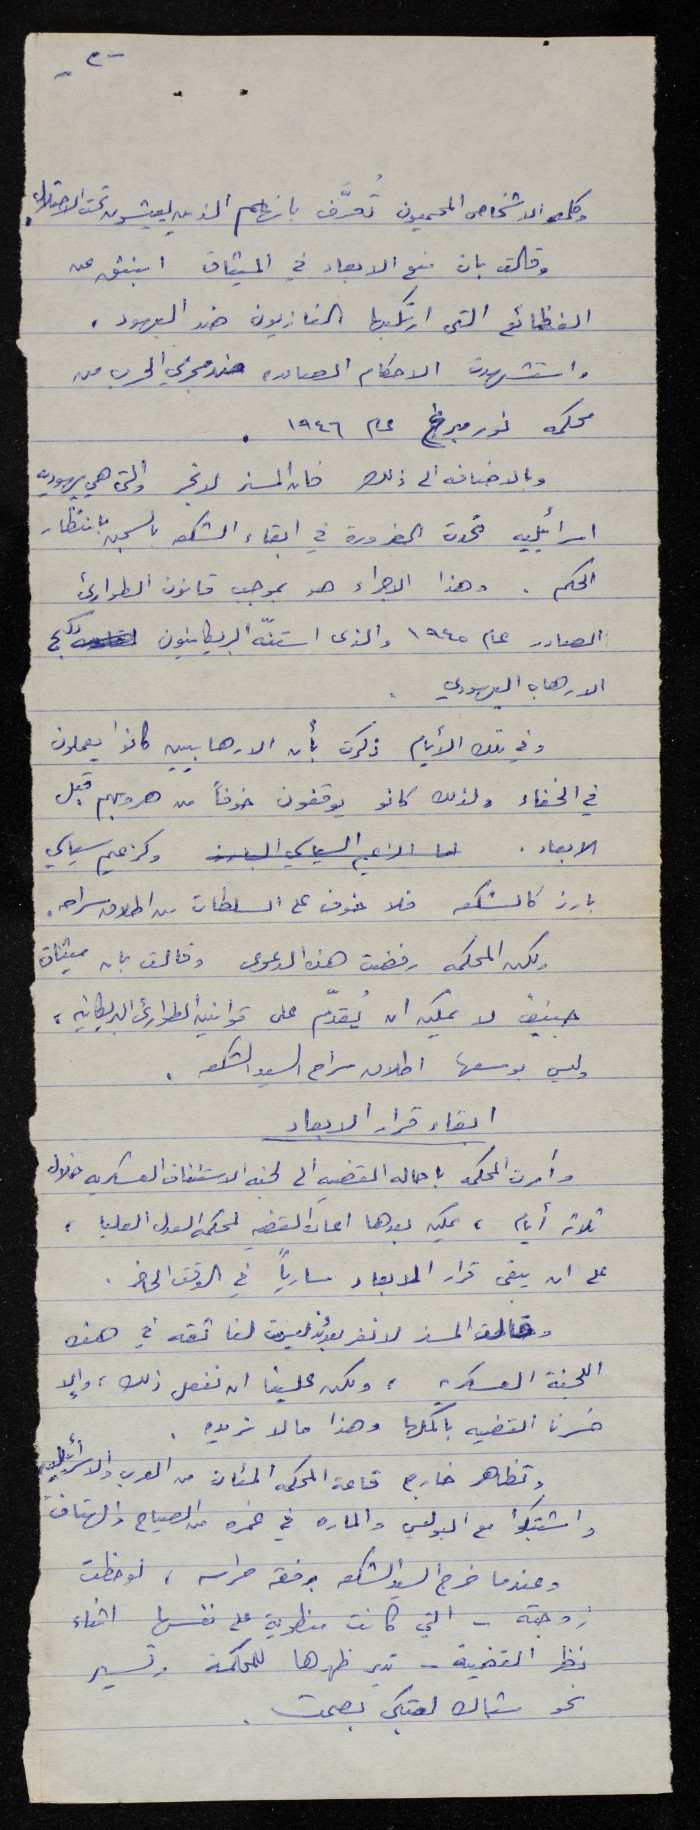 - ٢ -
وكلمة الاشخاص المحميون تُعرَّف بانهم الذين يعيشون تحت الاحتلال.
وقالت بان منع الابعاد في الميثاق انبثق عن
الفظائع التي ارتكبها النازيون ضد اليهود ،
واستشهدت الاحكام الصادره ضد مجرمي الحرب من
محكمه نورمبرغ عام ١٩٤٦ .
وبالاضافه الى ذلك فان المسز لانجر والتي هي يهوديه
اسرائيليه تحدت الضرورة في ابقاء الشكعه بالسجن بانتظار
الحكم . وهذا الاجراء هو بموجب قانون الطوارئ
الصادر عام ١٩٤٥ والذى استنّه البريطانيون لكبح
الارهاب اليهودي .
وفي تلك الأيام ذكرت بأن الارهابيين كانوا يعملون
في الخفاء ولذلك كانو يوقفون خوفاً من هروبهم قبل
الابعاد . اما الزعيم السياسي البارز وكزعيم سياسي
بارز كالشكعه فلا خوف على السلطات من اطلاق سراحه .
ولكن المحكمه رفضت هذه الدعوى وقالت بان ميثاق
جنيف لا يمكن ان يُقدّم على قوانين الطوارئ البريطانيه ،
وليس بوسعها اطلاق سراح السيد الشكعه .
ابقاء قرار الابعاد
وأمرت المحكمه باحاله القضيه الى لجنه الاستئناف العسكريه خلال
ثلاثة أيام ، يمكن بعدها اعادة القضيه لمحكمة العدل العليا ،
على ان يبقى قرار الابعاد سارياً في الوقت الحاضر .
وقالت المسز لانغر بعدئذ ليست لنا ثقه في هذه
اللجنة العسكريه ، ولكن علينا ان نفعل ذلك ، وإلا
خسرنا القضيه بأكملها وهذا ما لا نريده .
وتظاهر خارج قاعة المحكمه المئات من العرب والاسرائيليين
واشتبكوا مع البوليس والماره في غمره من الصياح والهتاف
وعندما خرج السيد الشكعه برفقه حراسه ، لوحظت
زوجته - التي كانت منطوية على نفسها اثناء
نظر القضية - تدير ظهرها للمحكمة وتسير
نحو شباك لتبكي بصمت .